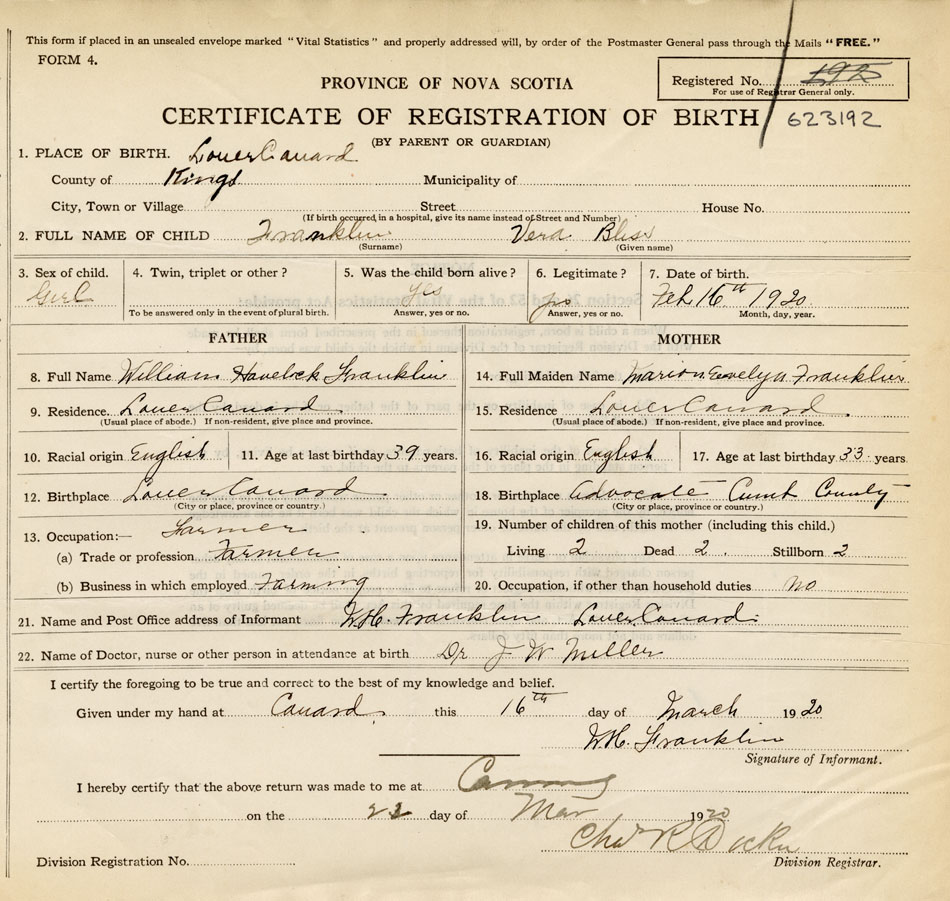 This form if placed in an unsealed envelope marked "Vital Statistics" and properly addressed will, by order of the Postmaster General pass through the Mails "FREE."
FORM 4.
Registered No.
For use of Registrar General only.
PROVINCE OF NOVA SCOTIA
CERTIFICATE OF REGISTRATION OF BIRTH 623192
(BY PARENT OR GUARDIAN)
1. PLACE OF BIRTH. Lower Canard
County of Kings Municipality of
City, Town or Village Street House No.
(If birth occurred in a hospital, give its name instead of Street and Number)
2. FULL NAME OF CHILD Franklin Vera Bliss
(Surname) (Given name)
3. Sex of child. 4. Twin, triplet or other? 5. Was the child born alive? 6. Legitimate? 7. Date of birth.
Girl yes yes Feb. 16th 1920
To be answered only in the event of plural birth. Answer, yes or no. Answer, yes or no. Month, day, year.
FATHER MOTHER
8. Full Name William Havelock Franklin 14. Full Maiden Name Marion Evelyn Franklin
9. Residence. Lower Canard 15. Residence Lower Canard
(Usual place of abode.) If non-resident, give place and province. (Usual place of abode.) If non-resident, give place and province.
10. Racial origin English 11. Age at last birthday 39 years. 16. Racial origin English 17. Age at last birthday 33 years.
12. Birthplace Lower Canard 18. Birthplace Advocate Cumb County
(City or place, province or country.) (City or place, province or country.)
13. Occupation:— Farmer 19. Number of children of this mother (including this child.)
(a) Trade or profession Farmer Living 2 Dead 2 Stillborn 2
(b) Business in which employed Farming 20. Occupation, if other than household duties no
21. Name and Post Office address of Informant W.H. Franklin Lower Canard
22. Name of Doctor, nurse or other person in attendance at birth Dr J W Miller
I certify the foregoing to be true and correct to the best of my knowledge and belief.
Given under my hand at Canard this 16th day of March 1920
W.H. Franklin
Signature of Informant.
I hereby certify that the above return was made to me at Canning
on the day of Mar 1920
Chas R
Division Registration No. Division Registrar.